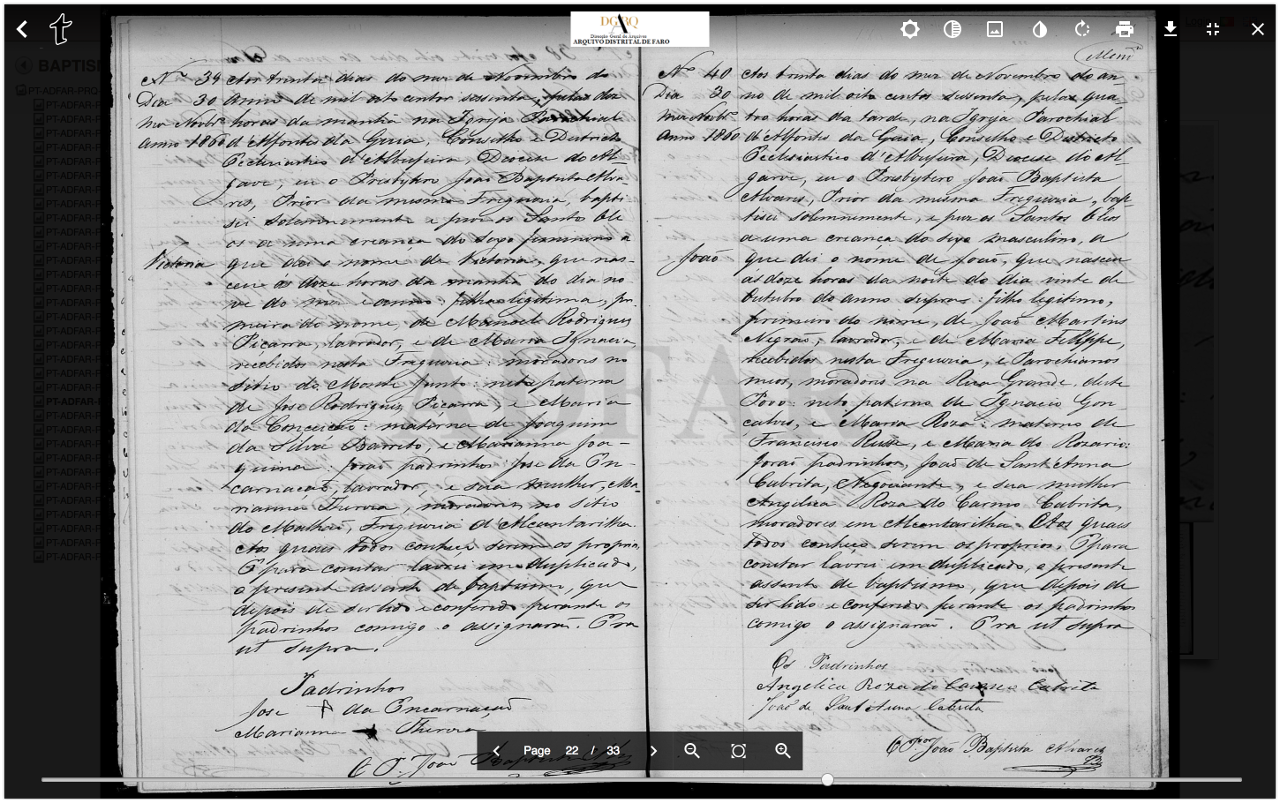 DGARQ
Direcção Geral de Arquivos
ARQUIVO DISTRITAL DE FARO
BAPTIS
PT-ADFAR-PRQ
Nº 39 Aos trinta dias do mez de Novembro do
Dia 30 anno de mil oito centos sessenta, pelas dez
mez Novbrº horas da manhã na Igreja Parochial
Anno 1860 d'Alfontes da Guia, Conselho e Districto
Ecclesiastico d'Albufeira, Diocese do Al-
garve, eu o Presbytero João Baptista Alva-
res, Prior da mesma Freguezia, bapti-
sei solemnemente e puz os Santos Ole
os a uma creança do sexo feminino a
Victoria que dei o nome de Victoria, que nas-
ceu ás doze horas da manhã do dia no
ve do mez e anno: filha legitima, pri
meira do nome, de Manoel Rodrigues
Piçarra, lavrador, e de Maria Ignacia,
recebidos nesta Freguezia: moradores no
sitio do Monte Junto: neta paterna
de Jose Rodrigues Piçarra, e Maria
da Conceição: materna de Joaquim
da Silva Barreto, e Marianna Joa-
quina: forão padrinhos Jose da En-
carnação, lavrador, e sua mulher, Ma-
rianna Thereza, moradores no sitio
do Malhão, Freguezia d'Alcantarilha.
Aos quaes todos conheço serem os proprios,
E para constar lavrei em duplicado,
o presente assento de baptismo, que
depois de ser lido e conferido perante os
padrinhos comigo o assignarão. Era
ut supra.
Padrinhos
Jose da Encarnação
Marianna Thereza
O P. João Baptista
Nº 40 Aos trinta dias do mez de Novembro do an
Dia 30 no de mil oito centos sessenta, pelas qua
mez Novbrº tro horas da tarde, na Igreja Parochial
Anno 1860 d'Alfontes da Guia, Conselho e Districto
Ecclesiastico d'Albufeira, Diocese do Al-
garve, eu o Presbytero João Baptista
Alvares, Prior da mesma Freguezia, bap-
tisei solemnemente, e puz os Santos Oleos
a uma creança do sexo masculino, a
João que dei o nome de João, que nasceu
ás doze horas da noite do dia vinte de
Outubro do anno supra: filho legitimo,
primeiro do nome, de João Martins
Negrão, lavrador, e de Maria Felippe,
recebidos nesta Freguezia, e Parochianos
meus, moradores na Rua Grande deste
Povo: neto paterno de Ignacio Gon
calves, e Maria Roza: materno de
Francisco, e Maria do Rozario:
forão padrinhos, João de Sant'Anna
Cabrita, Negociante, e sua mulher
Angelica Roza do Carmo Cabrita,
moradores em Alcantarilha. Aos quaes
todos conheço serem os proprios, E para
constar lavrei em duplicado, o presente
assento de baptismo, que depois de
ser lido e conferido perante os padrinhos
comigo o assignarão. Era ut supra
Os Padrinhos
Angelica Roza do Cabrita
João de Sant Anna Cabrita
O Pror João Baptista Alvares
ADFAR
Page 22 / 33